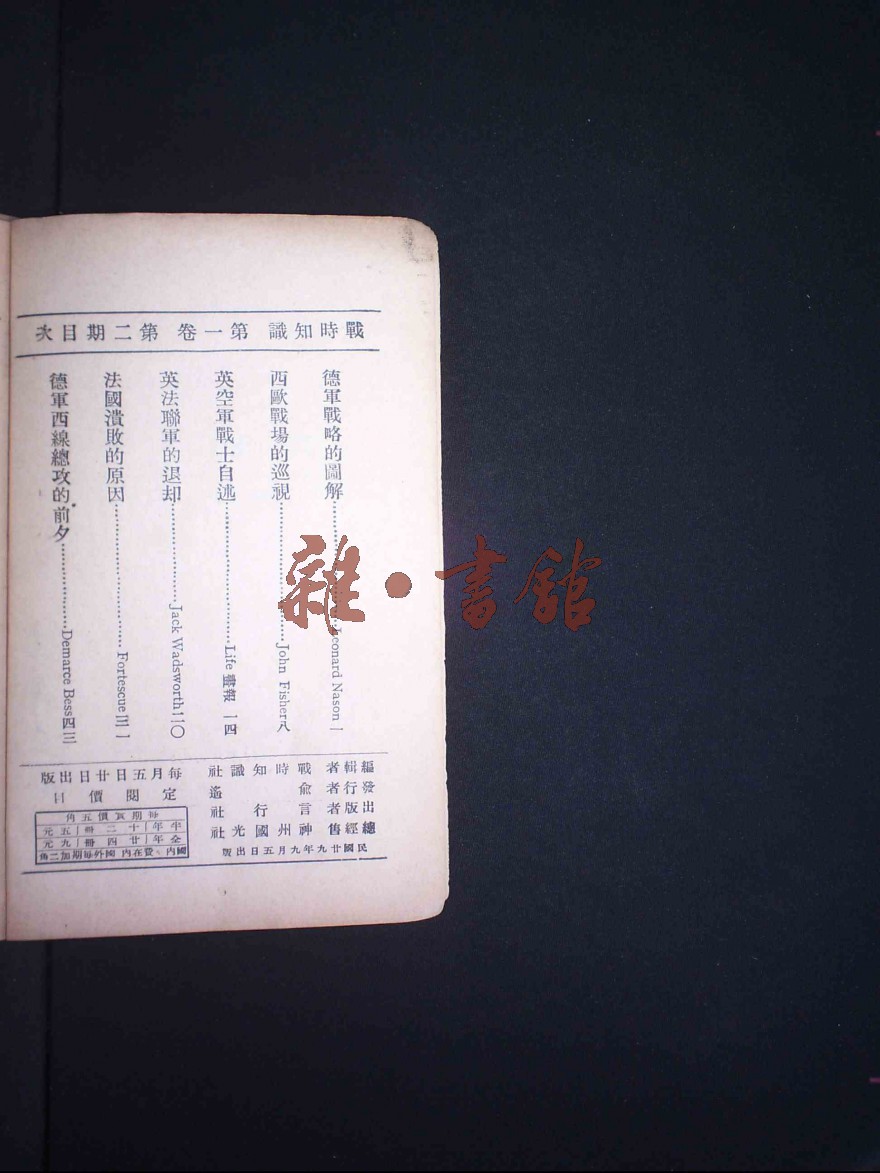 戰時知識 第一卷 第二期目次
德軍戰略的圖解……Leonard Nason 一
西歐戰場的巡視……John Fisher 八
英空軍戰士自述……Life 畫報 一四
英法聯軍的退却……Jack Wadsworth 二〇
法國潰敗的原因……Fortescue 三一
德軍西線總攻的前夕……Demarce Bess 四三
編輯者 戰時知識社
發行者 俞遙
出版者 言行社
總經售 神州國光社
民國廿九年九月五日出版
每月五日廿日出版
定閱價目
每期實價五角
半年十二冊五元
全年廿四冊九元
國內郵費在內 國外每期加二角
雜·書館